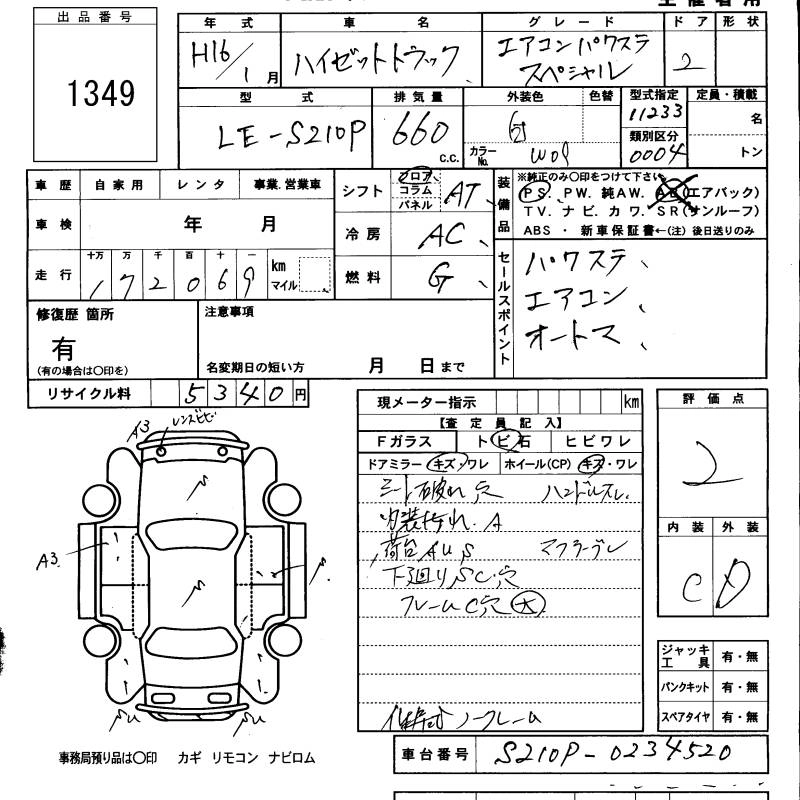 出品番号
1349
年式 車名 グレード ドア 形状
H16/1月 ハイゼットトラック エアコンパワステ 2
スペシャル
型式 排気量 外装色 色替 型式指定 定員・積載
LE-S210P 660 c.c. 白 11233 名
カラーNo. W09 類別区分 0004 トン
車歴 自家用 レンタ 事業.営業車
車検 年 月
走行 十万 万 千 百 十 一
172069 km マイル
シフト フロア コラム パネル AT
冷房 AC
燃料 G
装備品 ※純正のみ〇印をつけて下さい
PS. PW. 純AW. AB(エアバック)
TV. ナビ. カワ. SR(サンルーフ)
ABS ・ 新車保証書←(注) 後日送りのみ
セールスポイント
パワステ、
エアコン、
オートマ、
修復歴 箇所
有
(有の場合は〇印を)
注意事項
名変期日の短い方 月 日まで
リサイクル料 5340円
現メーター指示 km
【査定員記入】
Fガラス トビ石 ヒビワレ
ドアミラー キズ・ワレ ホイール(CP) キズ・ワレ
シート破れ 穴 ハンドルスレ
内装汚れ. A
荷台AUS
下廻りSC穴
フレームC穴 大
評価点
2
内装 外装
C D
A3
レンズヒビ
A3.
ジャッキ工具 有・無
パンクキット 有・無
スペアタイヤ 有・無
事務局預り品は〇印 カギ リモコン ナビロム
車台番号 S210P-0234520